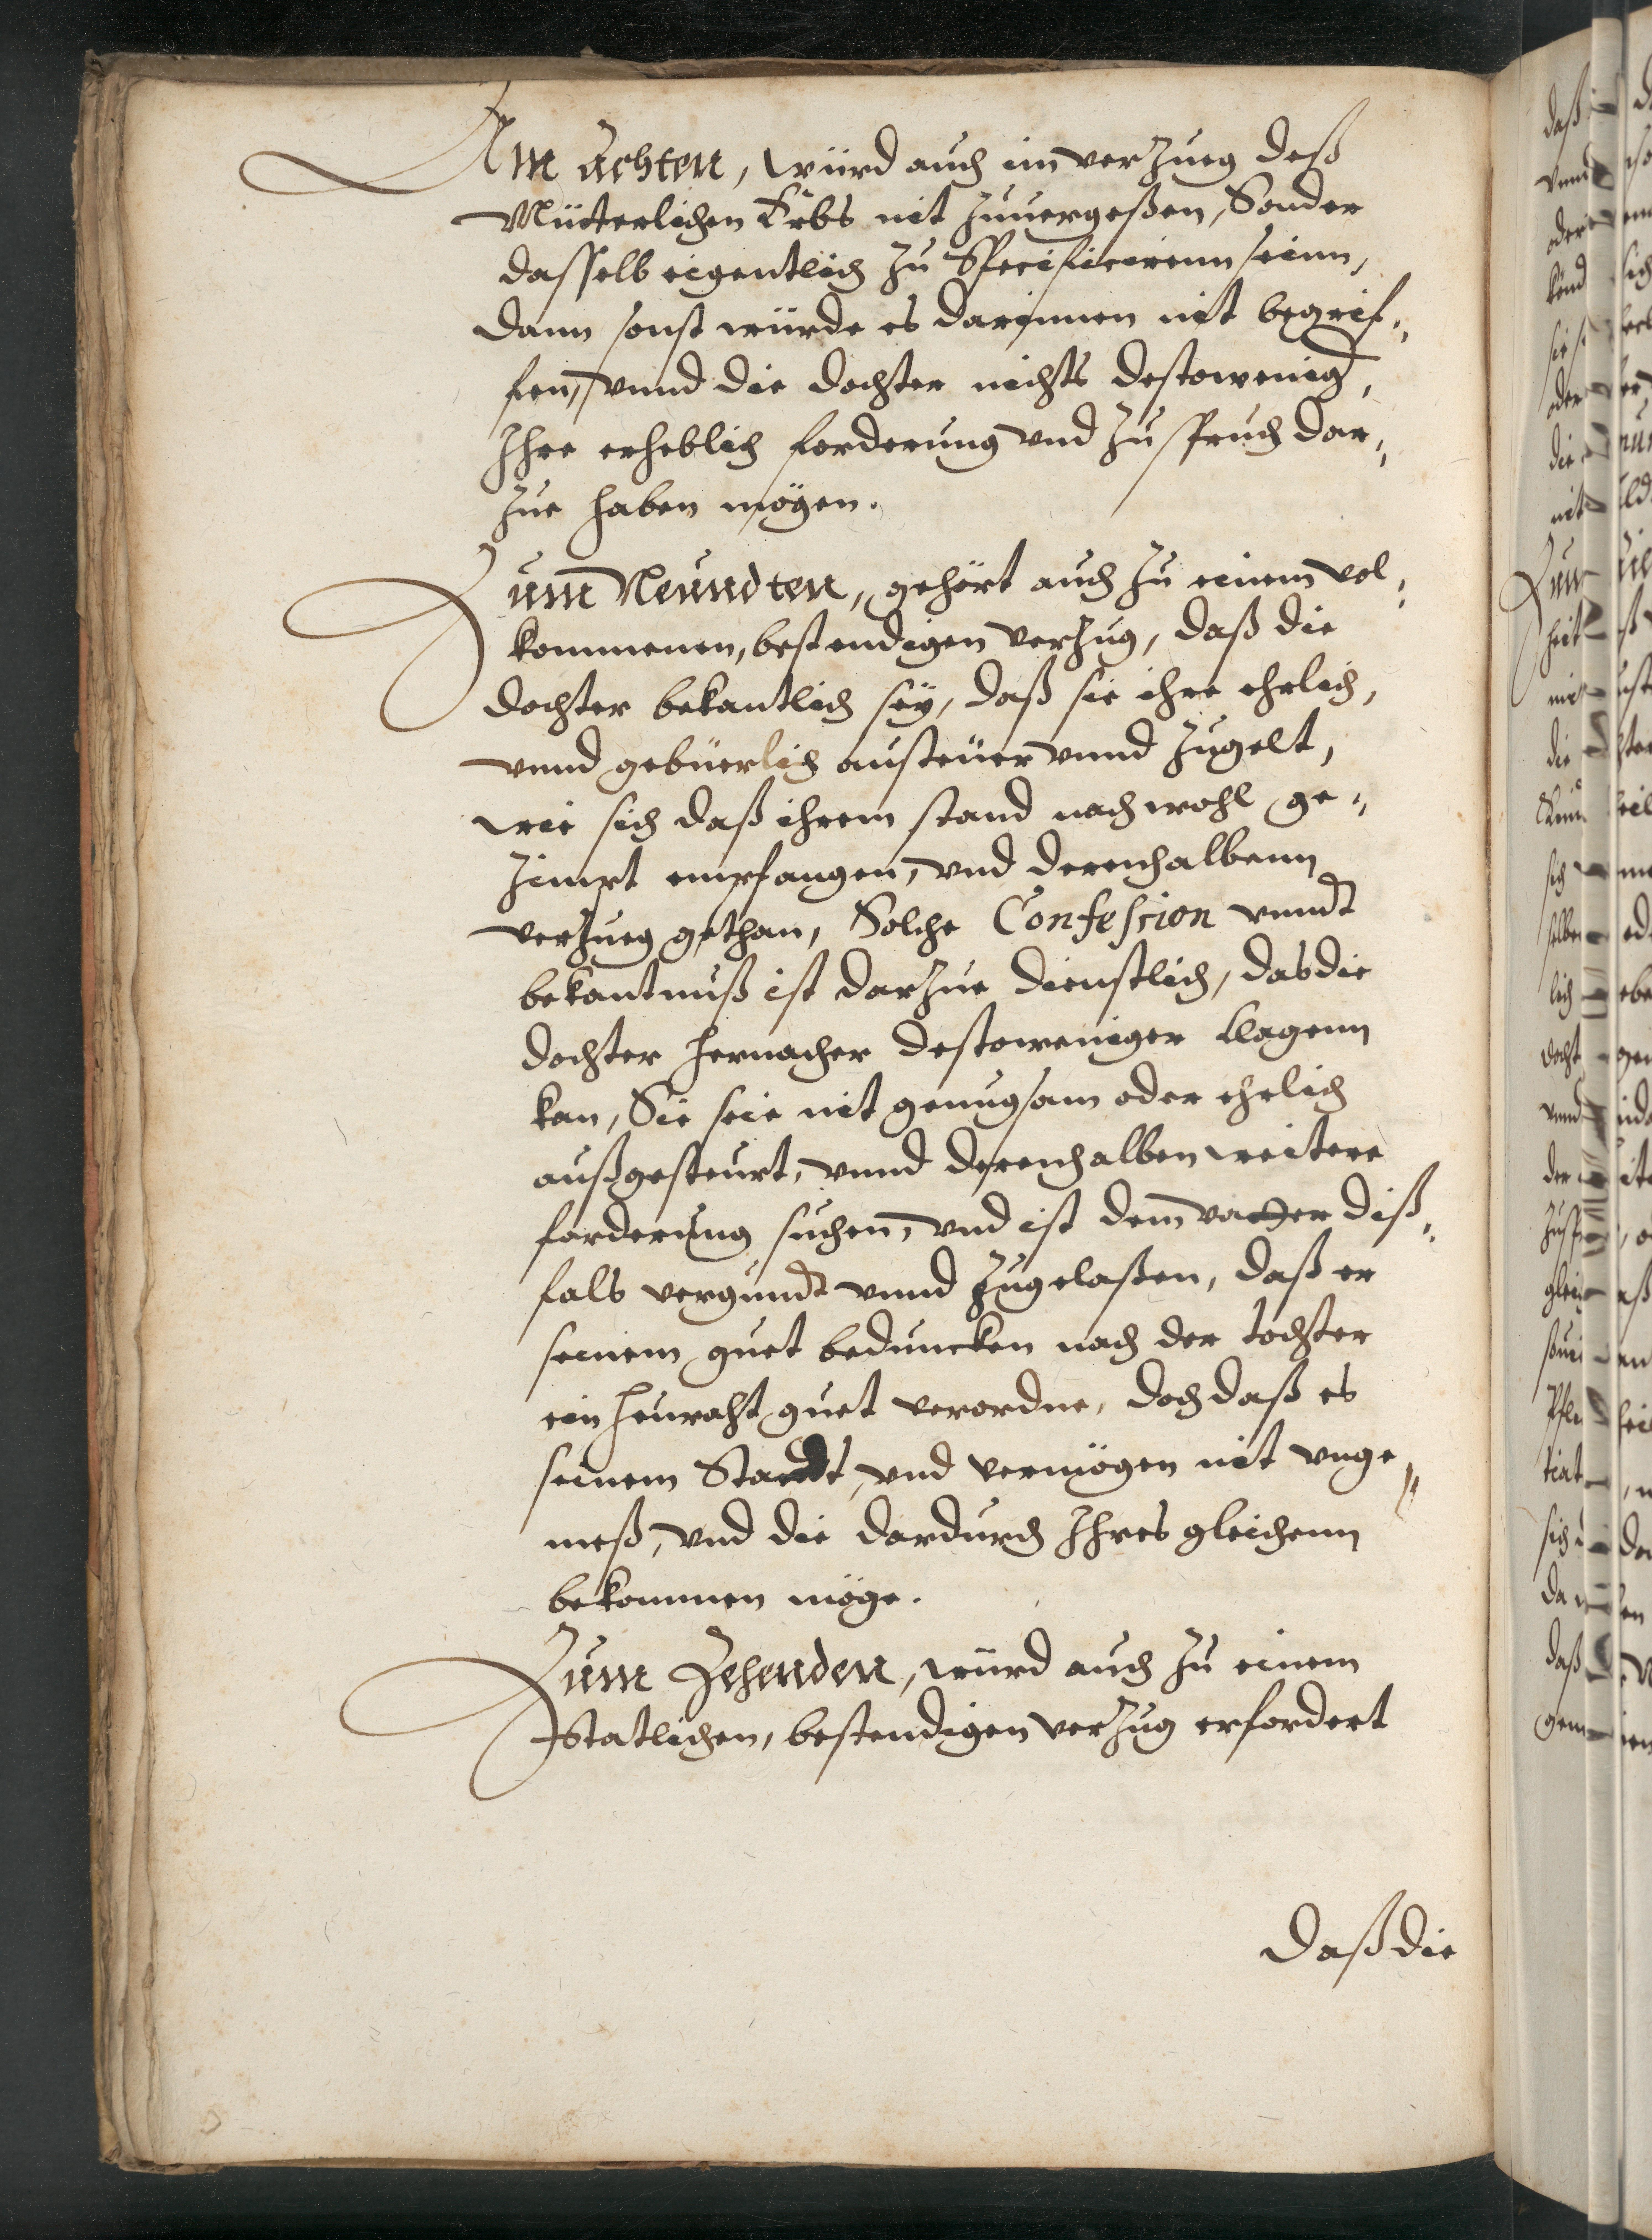 Am Achten, würd auch im verzueg deß
Mütterlichen Erbs nit zuuergeßen, Sonder
dasselb eigentlich zu Specificirenn seinn,
dann sonst würde es darinnen nit begrif„
fen, vnnd die dochter nichts destowenig͠,
Ihre erheblich forderung vnd zuspruch dar„
zue haben mögen.
Zum Neundten, gehört auch zu einem vol„
kommenen, bestendigen verzug, daß die
dochter bekantlich seÿ, daß sie ihre ehrlich,
vnnd gebüerlich austeüer vnnd zugelt,
wie sich daß ihrem stand nach wohl ge„
zimpt empfangen, vnd derenhalbenn
verzueg gethan, Solche Confession vnndt
bekantnuß ist darzue dienstlich, das die
dochter hernacher destoweniger klagenn
kan, Sie seie nit genugsam oder ehrlich
außgesteurt, vnnd derenhalben weitere
forderung suchen, vnd ist dem vatter diß„
fals vergundt vnnd zugelaßen, daß er
seinem guet beduncken nach der tochter
ein heuraht guet verordne, doch daß es
seinem Standt, vnd vermögen nit vnge„
meß, vnd die dardurch Ihres gleichenn
bekommen möge.
Zum Zehenden, würd auch zu einem
Statlichen, bestendigen verzug erfordert
daß die